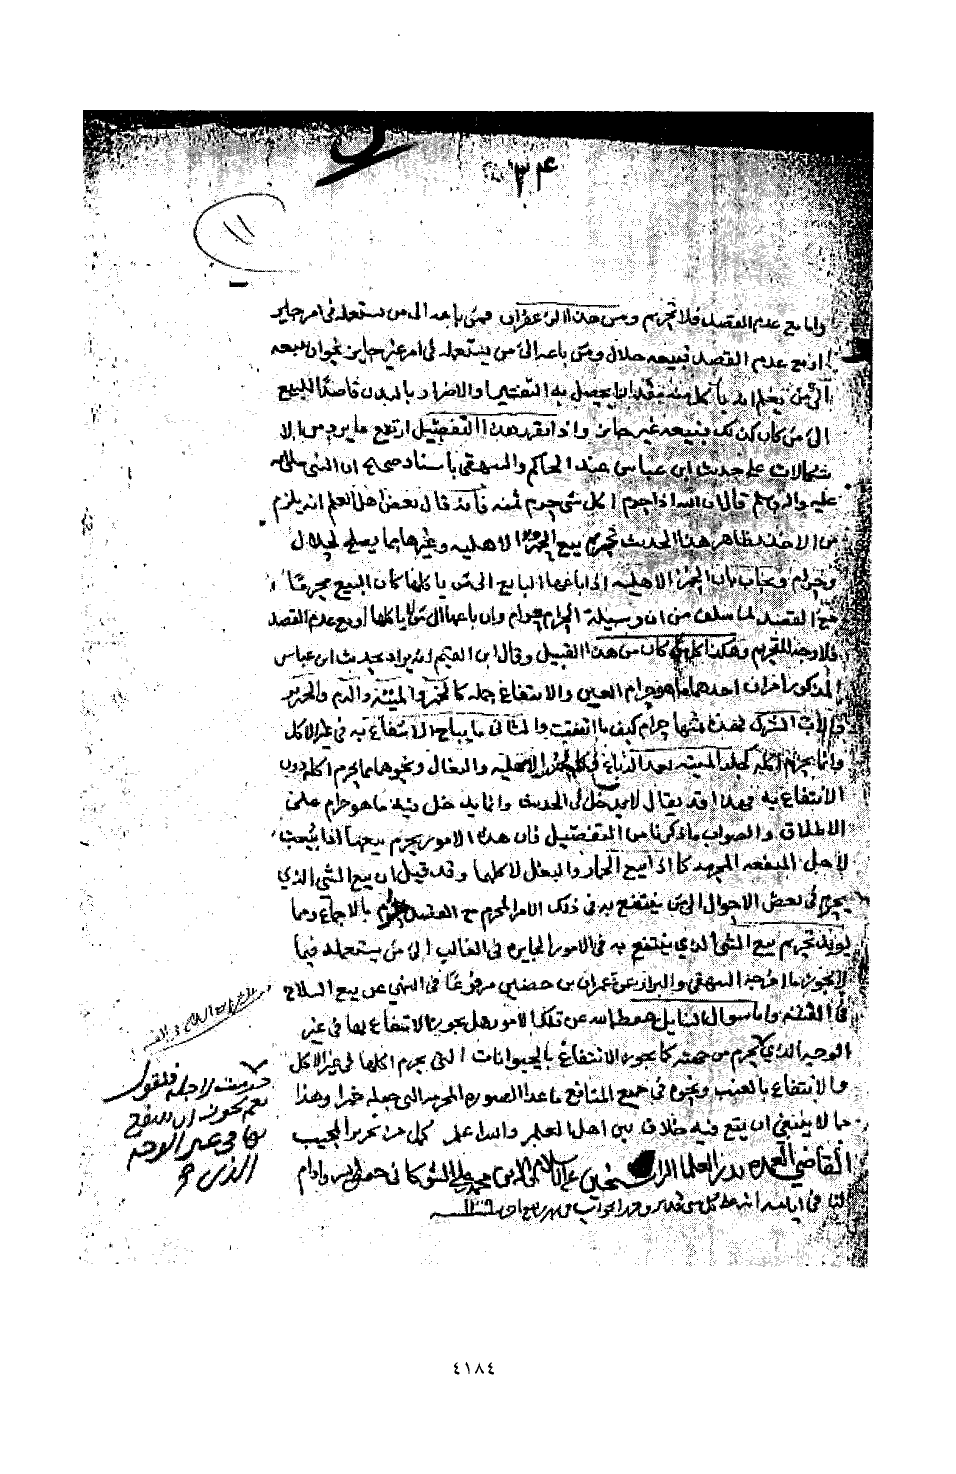 ٢٤
١١
واما مع عدم القصد فلا تحريم ومن هذا الزعفران فمن باعه الى من يستعمله في امر جايز
او مع عدم القصد فبيعه حلال ومن باعه الى من يستعمله في امر غير جايز نحو ان يبيعه
الى من يعلم انه يأكل منه مقدارا يحصل به التفتير والاضرار بالبدن قاصدا للبيع
الى من كان كذلك فبيعه غير جايز واذا تقرر هذا التفصيل ارتفع ما يرد من الا
شكالات على حديث ابن عباس عند الحاكم والبيهقي باسناد صحيح ان النبي صلى الله
عليه واله وسلم قال ان الله اذا حرم اكل شي حرم ثمنه فانه قد قال بعض اهل العلم انه يلزم
من الاخذ بظاهر هذا الحديث تحريم بيع الحمر الاهلية وغيرها مما يصلح لحلال
وحرام ويجاب بان الحمر الاهلية اذا باعها البايع الى من ياكلها كان البيع محرما
مع القصد لما سلف من ان وسيلة الحرام حرام وان باعها الى من لا ياكلها او مع عدم القصد
فلا وجه للتحريم وهكذا كل شي كان من هذا القبيل وقال ابن القيم انه يراد بحديث ابن عباس
المذكور امران احدهما ما هو حرام العين والانتفاع جملة كالخمر والميتة والدم والخنزير
والات الشرك فهذه ثمنها حرام كيف ما اتفقت والثاني ما يباح الانتفاع به في غير الاكل
وانما يحرم اكله كجلد الميتة بعد الدباغ وكالحمر الاهلية والبغال ونحوها مما يحرم اكله دون
الانتفاع به فهذا قد يقال لا يدخل في الحديث وانما يدخل فيه ما هو حرام على
الاطلاق والصواب ما ذكرنا من التفصيل فان هذه الامور يحرم بيعها اذا بيعت
لاجل المنفعة المحرمة كما اذا بيع الحمار والبغل لاكلهما وقد قيل ان بيع الشي الذي
يحرم في بعض الاحوال الى من ينتفع به في ذلك الامر المحرم مع القصد محرم بالاجماع ومما
يويد تحريم بيع الشي الذي ينتفع به في الامور الجايزة في الغالب الى من يستعمله فيما
لا يجوز ما اخرجه البيهقي والبزار عن عمران بن حصين مرفوعا في النهي عن بيع السلاح
في الفتنة واما سوال السايل حفظه الله عن تلك الامور هل يجوز الانتفاع بها في غير
الوجه الذي يحرم من جهته كما يجوز الانتفاع بالحيوانات التي يحرم اكلها في غير الاكل
والانتفاع بالعنب ونحوه في جميع المنافع ما عدا الصورة المحرمة التي جعله خمرا وهذا
مما لا ينبغي ان يقع فيه خلاف بين اهل العلم والله اعلم كمل من تحرير المجيب
القاضي العمدة بدر العلما الراسخين عز الاسلام محمد بن علي الشوكاني
لنا في ايامه انه على كل شي قدير
حرمت لاجله فنقول
نعم يجوز ان ينتفع
بها في غير الوجه
الذي
٤١٨٤